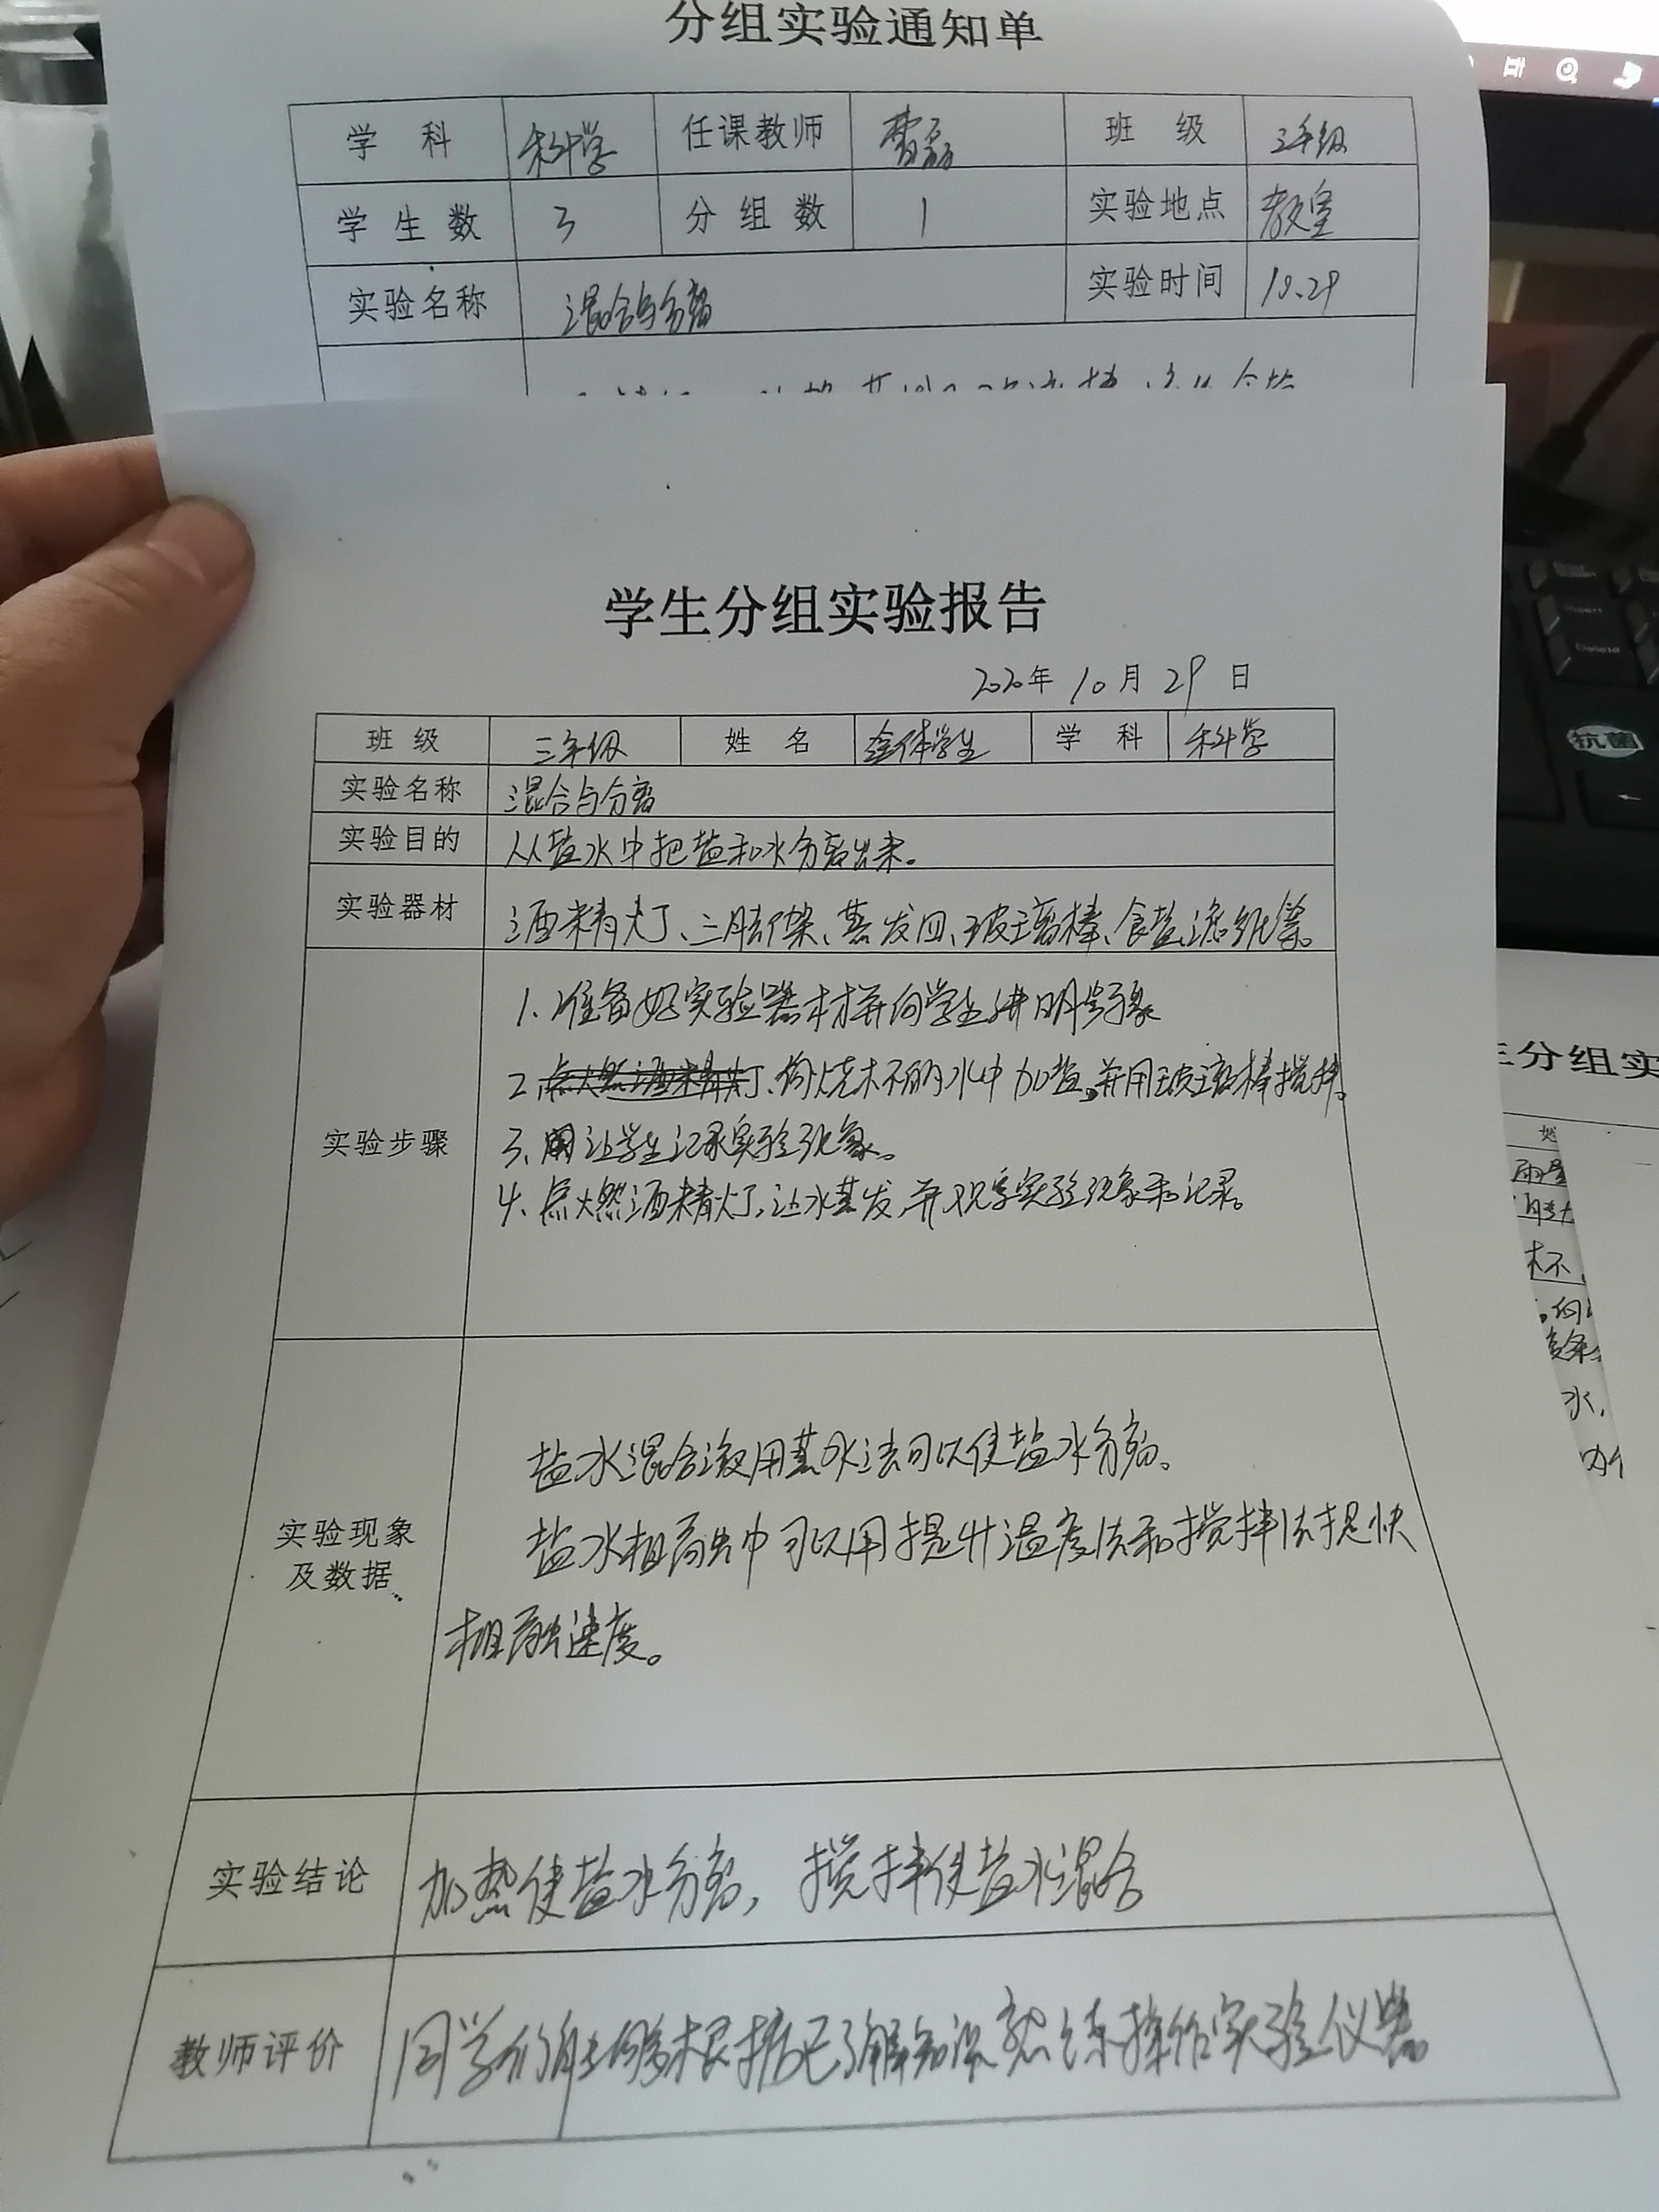 分组实验通知单
学科 科学 任课教师 班级 三年级
学生数 3 分组数 1 实验地点 教室
实验名称 混合与分离 实验时间 10.29
学生分组实验报告
2020年 10月 29日
班级 三年级 姓名 全体学生 学科 科学
实验名称 混合与分离
实验目的 从盐水中把盐和水分离出来。
实验器材 酒精灯、三脚架、蒸发皿、玻璃棒、食盐、滤纸等。
1. 准备好实验器材并向学生讲明
实验步骤
2. 点燃酒精灯、向烧杯的水中加盐。并用玻璃棒搅拌。
3、让学生记录实验现象。
4. 点燃酒精灯,让水蒸发,并观察实验现象和记录。
盐水混合液用蒸水法可以使盐水分离。
实验现象
及数据
盐水相融中可以用提升温度法和搅拌法提快
相融速度。
实验结论 加热使盐水分离,搅拌使盐水混合
教师评价 同学们能够根据已了解知识熟练操作实验仪器
抗菌
Delete
生分组实